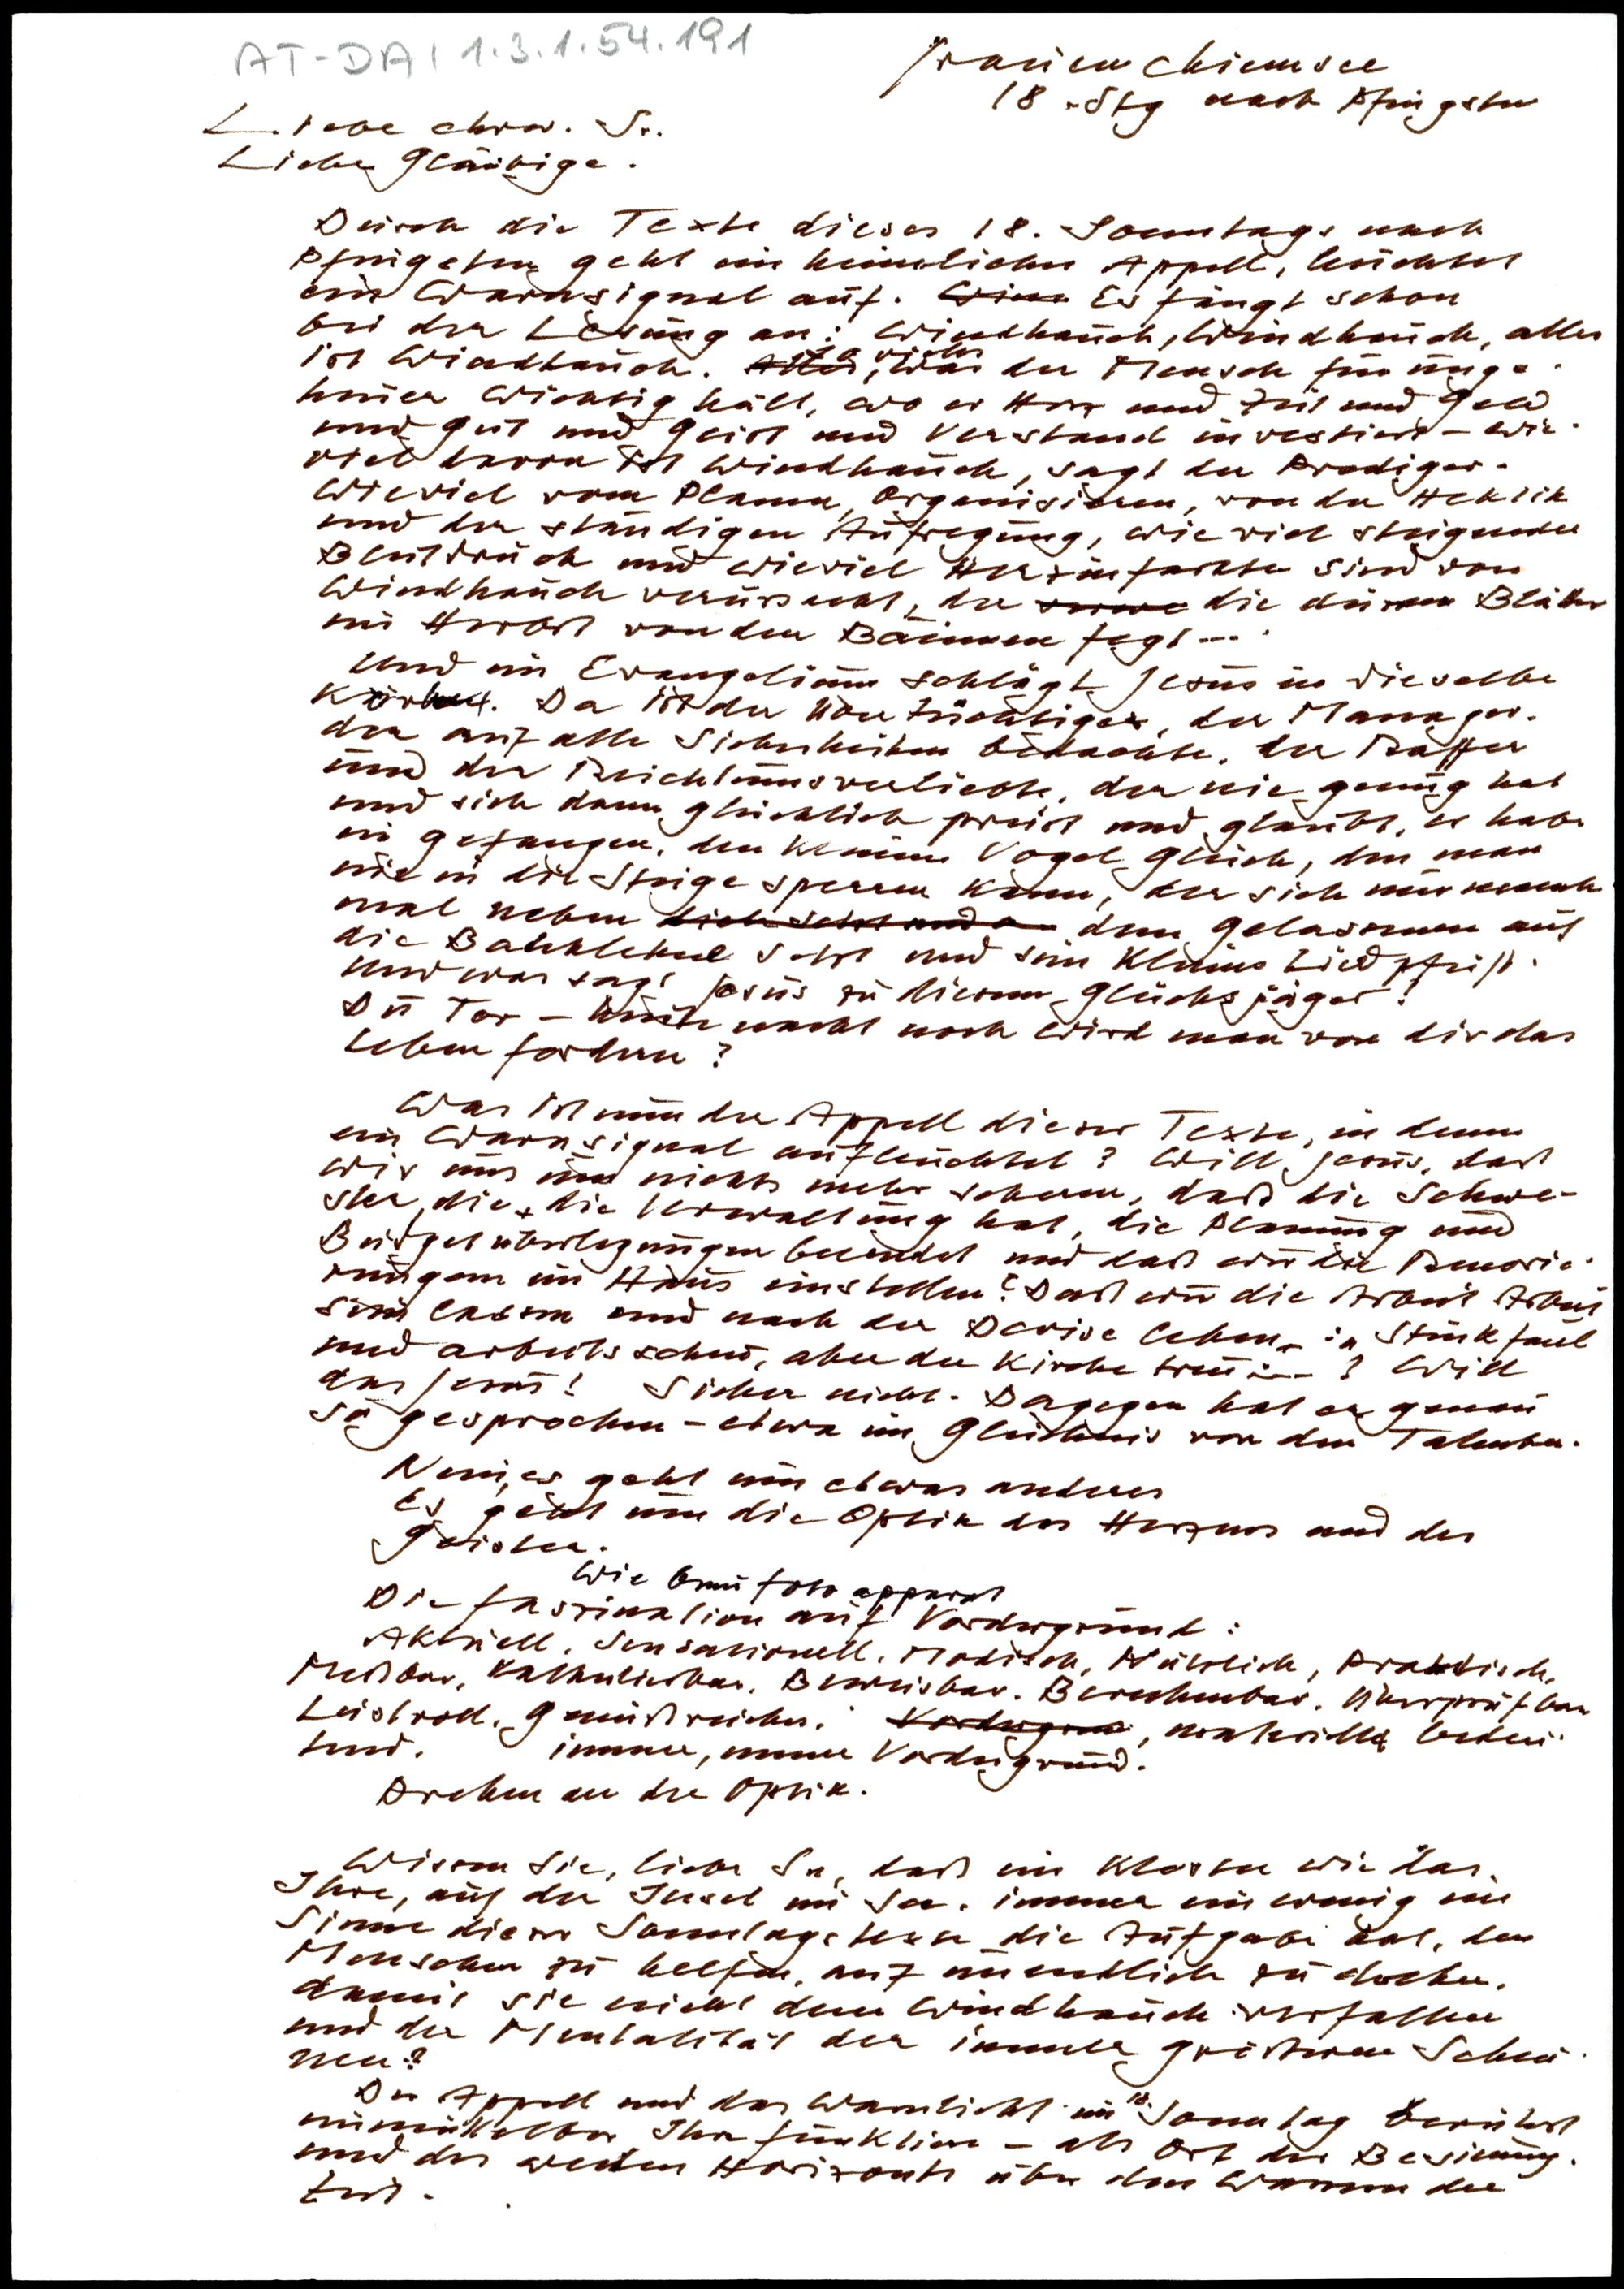 AT-DA 1.3.1.54.191
Frauenchiemsee
18. Stg nach Pfingsten
Liebe ehrw. Sr.
Liebe Gläubige.
Durch die Texte dieses 18. Sonntags nach
Pfingsten geht ein heimlicher Appell, leuchtet
ein Warnsignal auf. Es fängt schon
bei der Lesung an: Windhauch, Windhauch, alles
ist Windhauch. was der Mensch für unge-
heuer wichtig hält, wo er Herz und Zeit und Geld
und Gut und Geist und Verstand investiert – wie-
viel davon ist Windhauch, sagt der Prediger.
Wieviel vom Planen, Organisieren, von der Hektik
und der ständigen Aufregung, wie viel steigender
Blutdruck und wieviel Herzinfarkte sind von
Windhauch verursacht, der die dürren Blätter
im Herbst von den Bäumen fegt...
Und im Evangelium schlägt Jesus in dieselbe
Kerbe. Da ist der Übertüchtige, der Manager.
der auf alle Sicherheiten bedachte. der Raffer
und der Reichtumsverliebte, der nie genug hat
und sich dann glücklich preist und glaubt, er habe
ihn gefangen, den kleinen Vogel Glück, den man
nie in die Steige sperren kann, der sich nur manch-
mal neben dem Gelassenen auf
die Banklehne setzt und sein kleines Lied pfeift.
Und was sagt Jesus zu diesem Glücksjäger?
Du Tor – heute nacht noch wird man von dir das
Leben fordern?
Was ist nun der Appell dieser Texte, in denen
ein Warnsignal aufleuchtet? Will Jesus, daß
wir uns um nichts mehr scheren, daß die Schwe-
ster, die die Verwaltung hat, die Planung und
Budgetüberlegungen beendet und daß wir die Renovie-
rungen im Haus einstellen? Daß wir die Arbeit Arbeit
sein lassen und nach der Devise leben: Stinkfaul
und arbeitsscheu, aber der Kirche treu ? Will
das Jesus? Sicher nicht. Dagegen hat er genau
so gesprochen – etwa im Gleichnis von den Talenten.
Nein, es geht um etwas anderes
Es geht um die Optik des Herzens und des
Geistes.
Wie beim Fotoapparat
Die Faszination auf Vordergrund:
Aktuell, Sensationell, Modisch, Nützlich, Praktisch,
Meßbar, Kalkulierbar, Beweisbar, Berechenbar, Überprüfbar
Lustvoll, Genußreicher. , materielle bedeu-
tend. immer, immer Vordergrund.
Drehen an der Optik.
Wissen Sie, liebe Sr, daß ein Kloster wie das
Ihre, auf der Insel im See, immer ein wenig im
Sinne dieser Sonntagstexte die Aufgabe hat, den
Menschen zu helfen, auf unendlich zu drehen,
damit sie nicht dem Windhauch verfallen
und der Mentalität der immer größeren Scheu-
nen?
Der Appell und das Warnlicht im 18. Sonntag berührt
unmittelbar Ihre Funktion – als Ort der Besinnung.
und des weiten Horizonts über den Wassern der
Zeit.